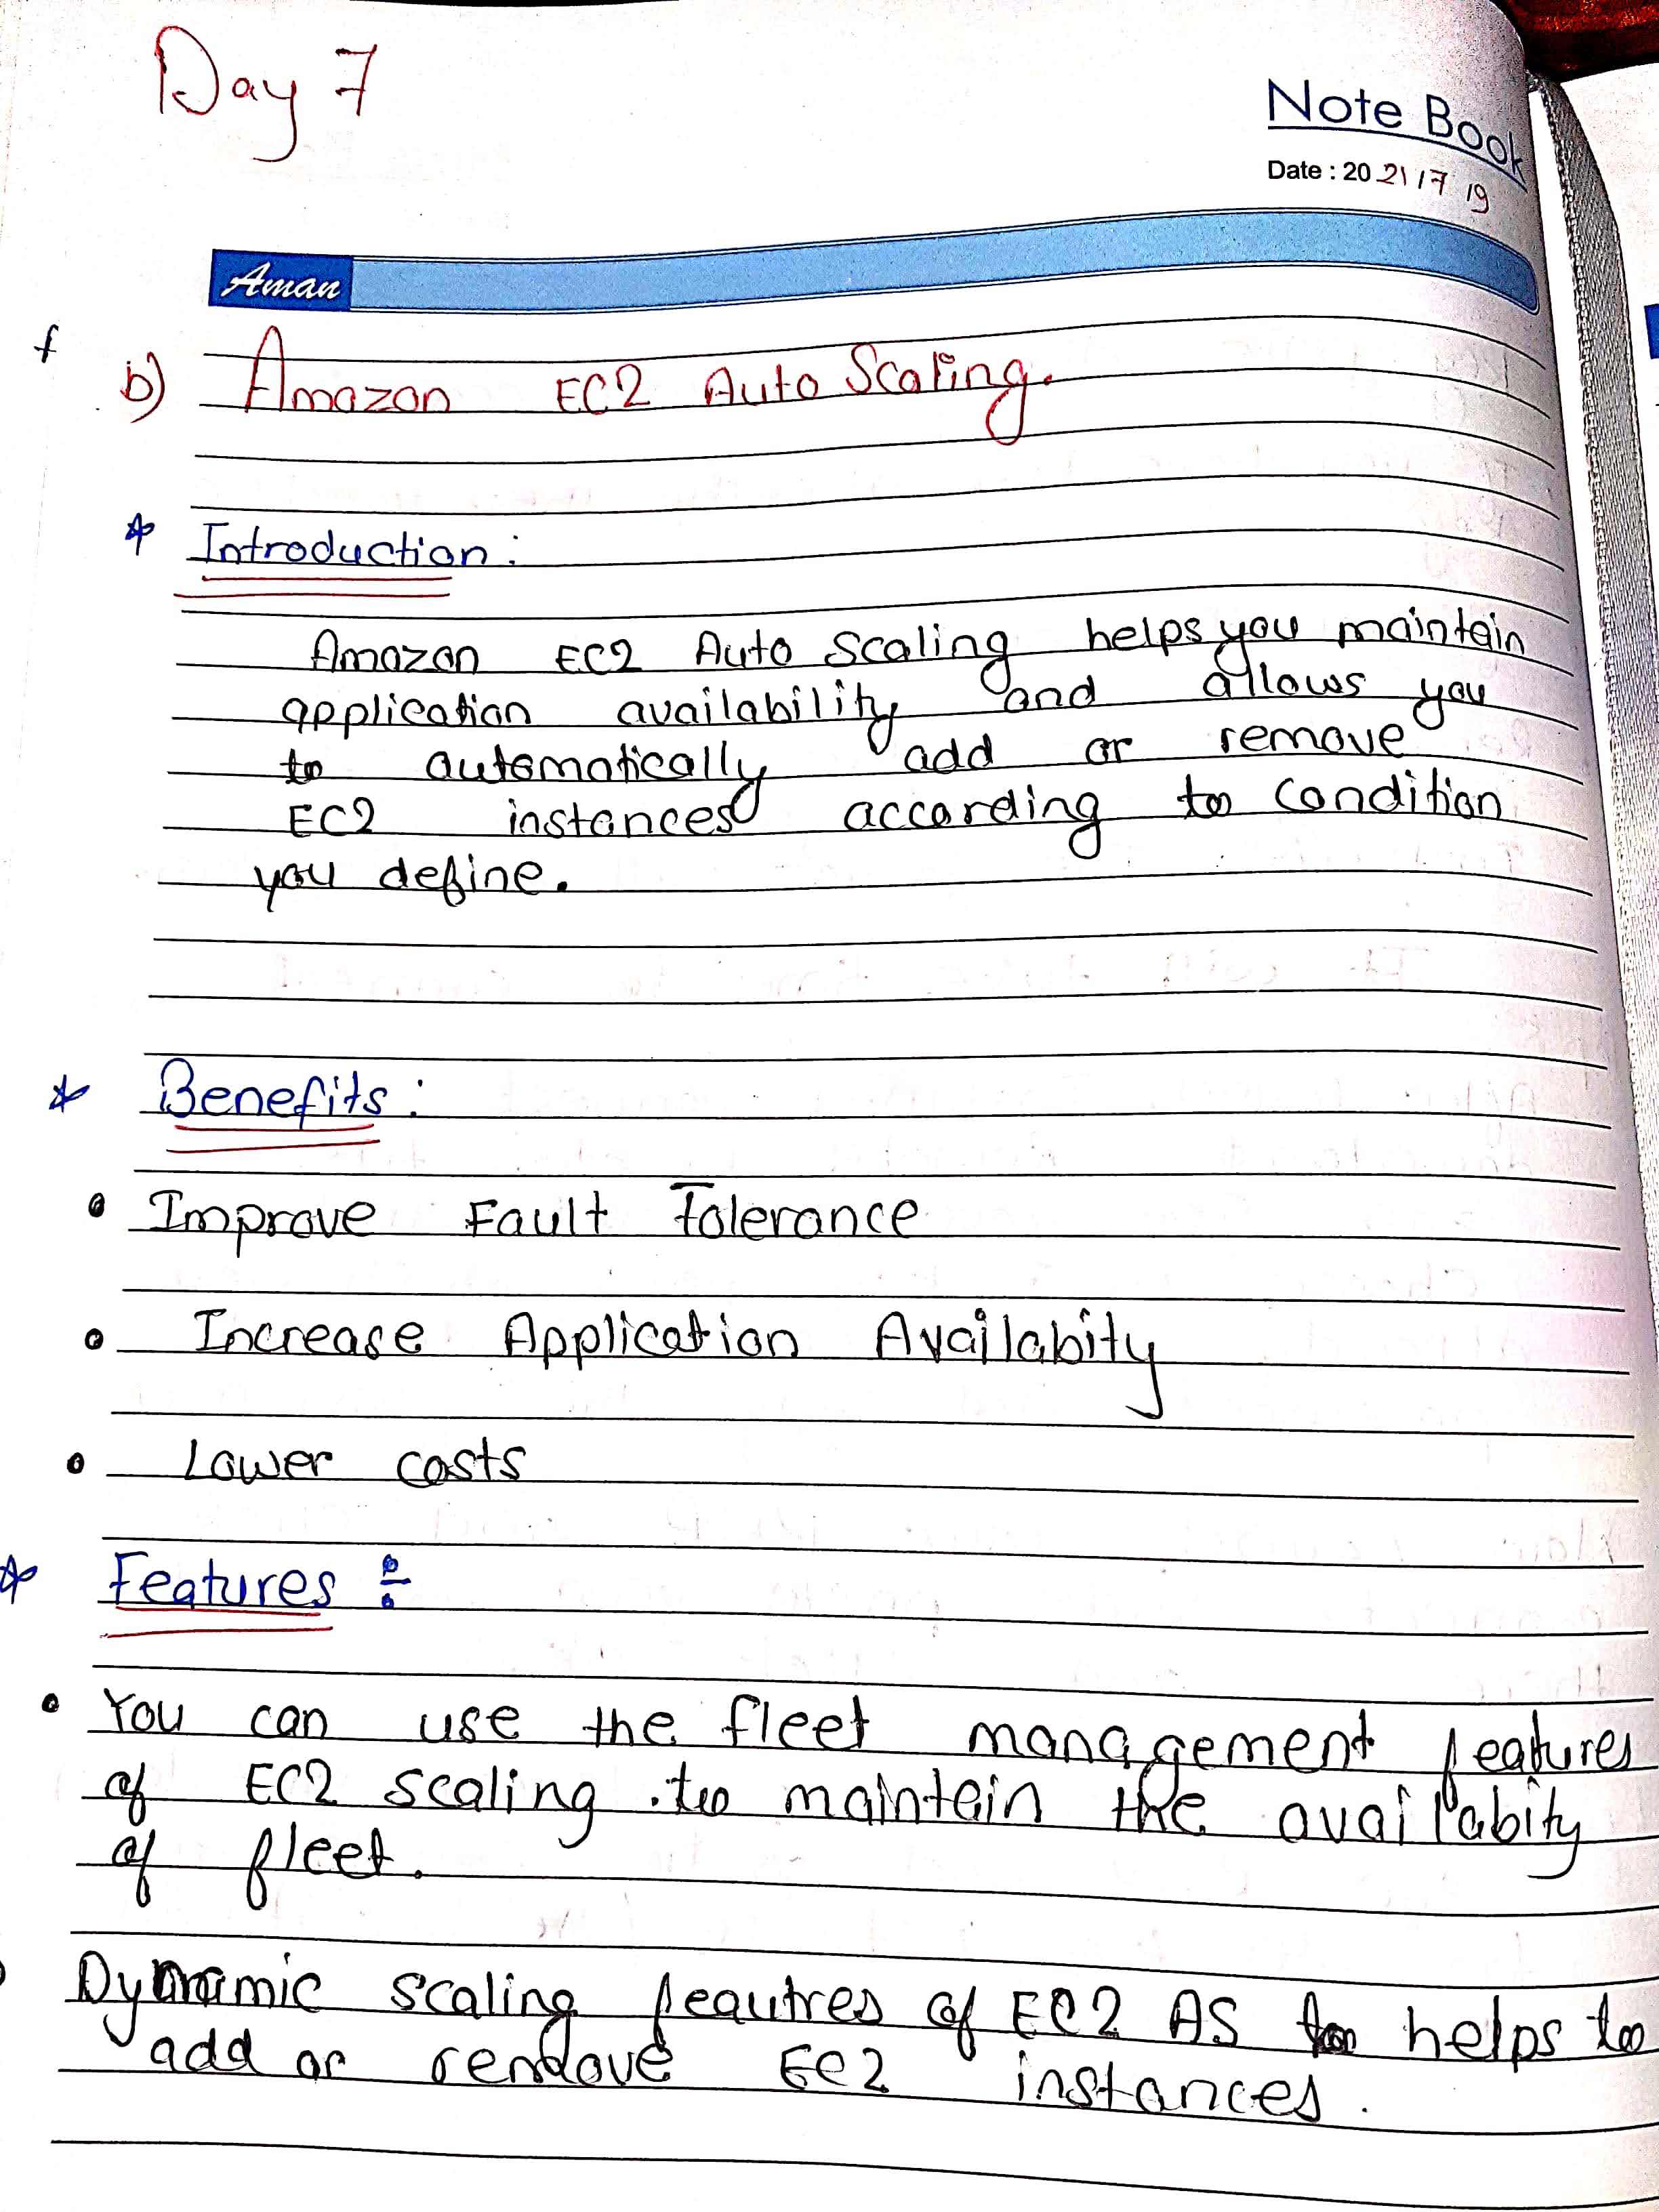 Day 7
Note Book
Date : 20 21/7 19
Aman
b) Amazon EC2 Auto Scaling.
* Introduction :
Amazon EC2 Auto Scaling helps you maintain
application availability and allows you
to automatically add or remove
EC2 instances according to condition
you define.
* Benefits :
• Improve Fault Tolerance
• Increase Application Availabity
• Lower costs
* Features :
• You can use the fleet management features
of EC2 scaling to maintain the availabity
of fleet.
Dynamic scaling feautres of EC2 AS helps to
add or remove EC2 instances.